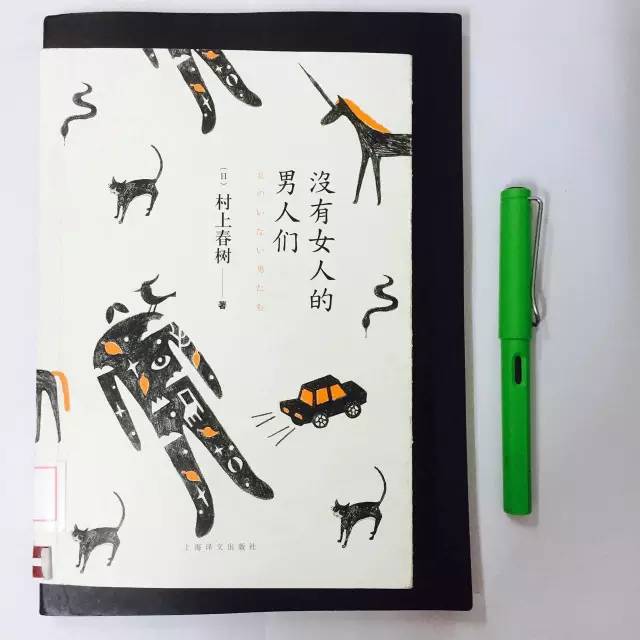 沒有女人的
男人们
女のいない男たち
（日）村上春树——著
上海译文出版社